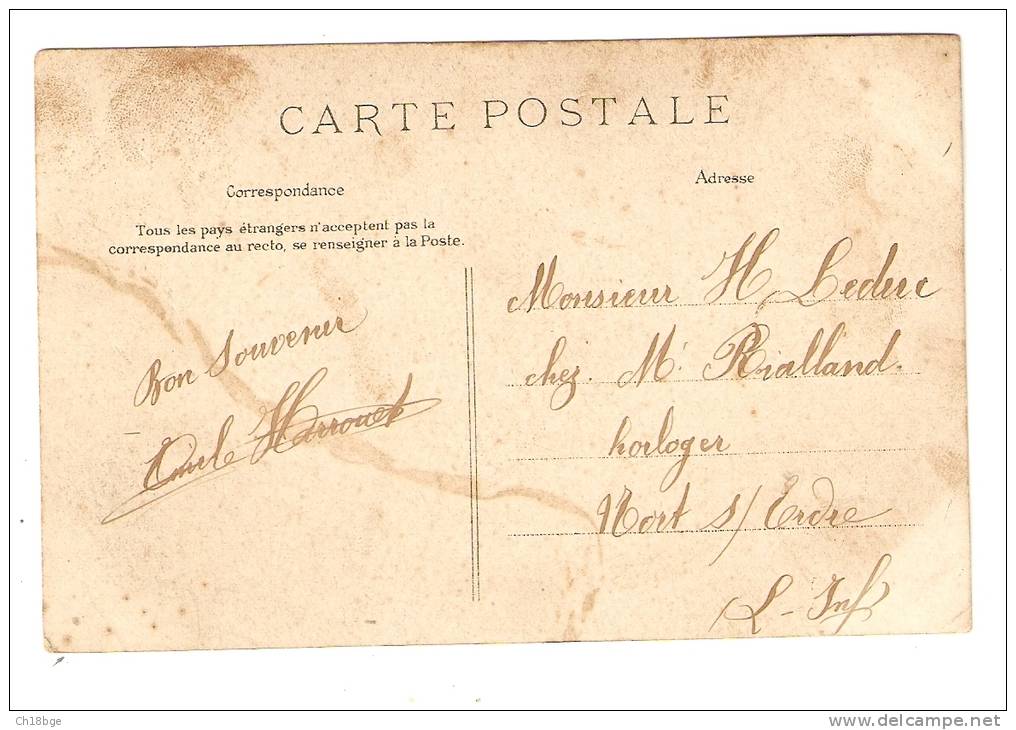 CARTE POSTALE
Correspondance
Tous les pays étrangers n'acceptent pas la
correspondance au recto, se renseigner à la Poste.
Bon Souvenir
Emile Harrouet
Adresse
Monsieur H Leduc
chez. Mr Rialland.
horloger
Nort s/ Erdre
L-Inf
Ch18bge
www.delcampe.net